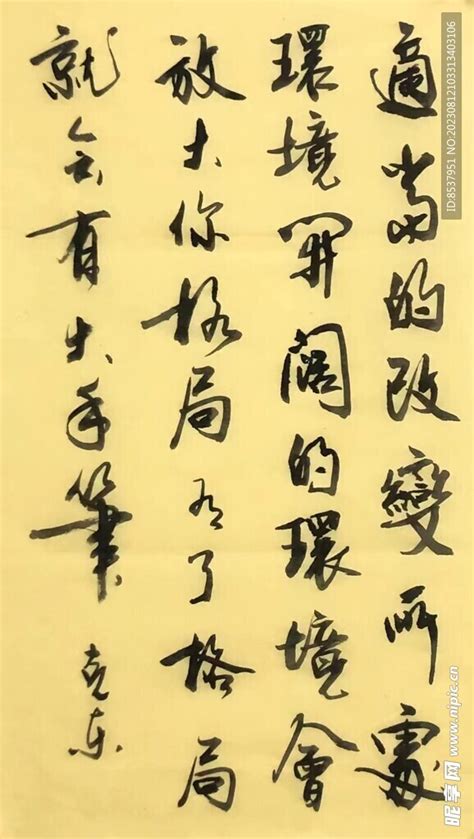 適當的改變所處
環境開闊的環境會
放大你格局有了格局
就会有大手筆
克東
ID:8537951 NO:20230812103313403106
昵享网 www.nipic.cn